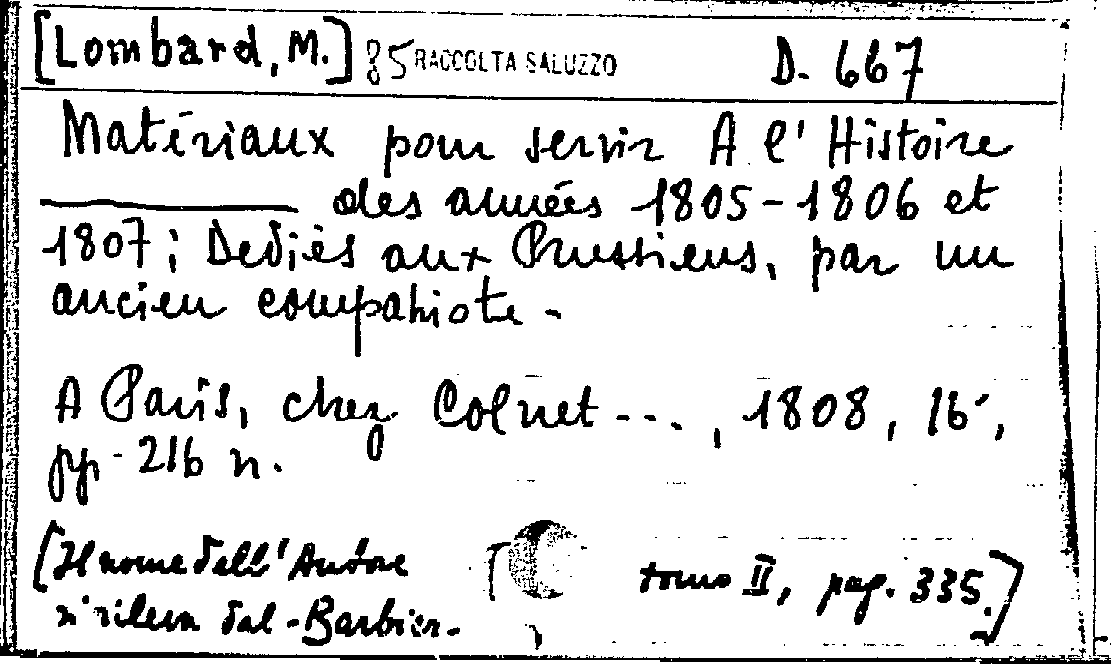 [Lombard, M.] 85 RACCOLTA SALUZZO D. 667
Matériaux pour servir A l'Histoire
des années 1805-1806 et
1807; Dediés aux Prussiens, par un
ancien compatriote.
A Paris, chez Colnet ..., 1808, 16°,
pp. 216 n.
[Il nome dell'Autore
si rileva dal - Barbier. tomo II, pag. 335.]